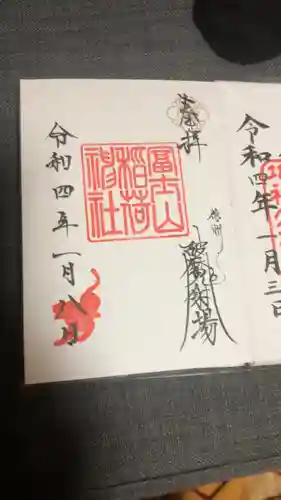 令和四年一月三日
奉拝
信州
射場
冨士山
稲荷
神社
令和四年一月八日